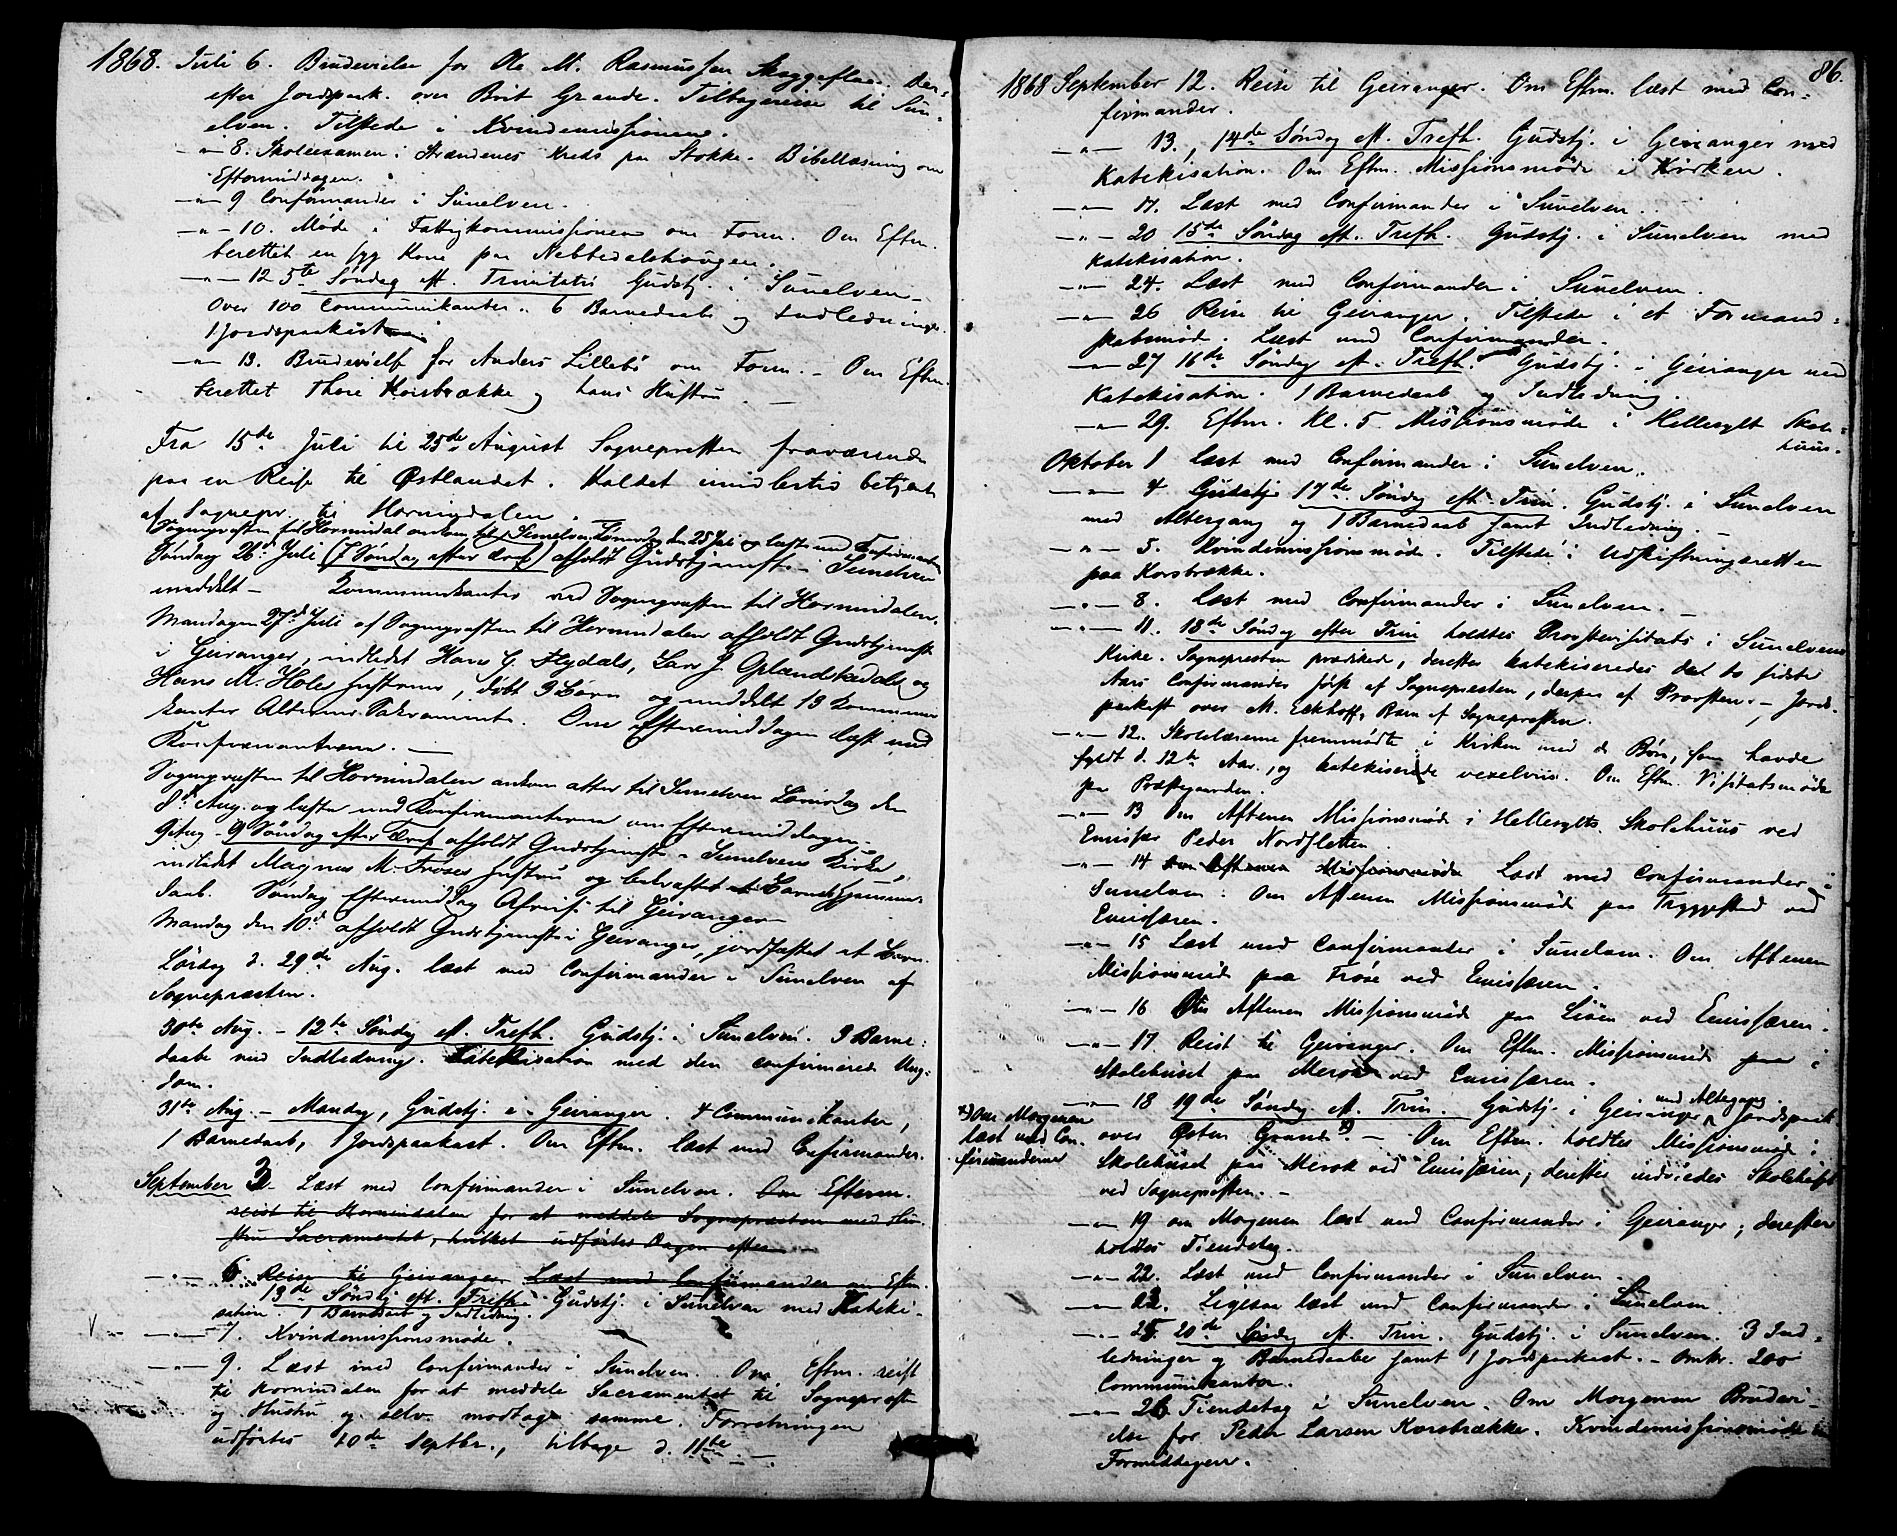 1868. Juli 6. Brudevielse for Ole M. Rasmussen Skaggeflaa. Der-
efter Jordspaak. over Brit Grande. Tilbagereise til Sun-
elven. Tilstede i Kvindemissionens.
-"- 8. Skoleexamen i Strændenes Kreds paa Stokke. Bibellæsning om
Eftermiddagen.
-"- 9 Confirmander i Sunelven.
-"- 10. Møde i Fattigkommissionen om Form. Om Eftm.
berettet en syg Kone paa Nebbedalshougen.
-"- 12 5te Søndag eft. Trinitatis Gudstj. i Sunelven
Over 100 Communikanter. 6 Barnedaab og Indledninger
1 Jordspaakast
-"- 13. Brudevielse for Anders Lillebø om Form. - Om Eftm.
berettet Thore Korsbrække og hans Hustru.
Fra 15de Juli til 25de August Sognepresten fraværende
paa en Reise til Østlandet. Kaldet imidlertid betjent
af Sognepr. til Hornindalen.
Sognepræsten til Hornindal ankom til Sunelven Lørverdag den 25 Juli og læste med Confirmanter
Søndag 26d Juli (7 Søndag efter Tref) afholdt Gudstjeneste i Sunelven
meddelt - Kommunikanter ved Sognepræsten til Hornindalen.
Mandagen 27d Juli af Sognepræsten til Hornindalen afholdt Gudstjeneste
i Geiranger, indledet Hans G. Flydals, Lars J. Oplandskedals og
Hans M. Holes hustruer, døbt 3 Børn og meddelt 13 Kommuni
kanter Alterens Sakramente. Om Eftermiddagen læst med
Konfirmanterne. -
Sognepræsten til Hornindalen ankom atter til Sunelven Lørverdag den
8d Aug. og læste med Konfirmanterne om Eftermiddagen.
9 Aug - 9 Søndag efter Tref afholdt Gudstjeneste i Sunelvens Kirke,
indledet Magnus M. Frøses hustru og bekræftet et Barns hjemme-
daab. Søndag Eftermiddag Afreise til Geiranger
Mandag den 10d afholdt Gudstjeneste i Geiranger, jordfæstet et Barn.
Lørdag d. 29de Aug. læst med Confirmander i Sunelven af
Sognepræsten.
30te Aug. - 12te Søndag eft. Trefh. Gudstj. i Sunelven. 3 Barne-
daabe med Indledning. Katekisation med den confirmerede Ung-
dom.
31te Aug. - Mandag, Gudstj. i Geiranger. 4 Communikanter,
1 Barnedaab, 1 Jordspaakast. Om Eftm. læst med Confirmander.
September 3. Læst med Confirmander i Sunelven. Om Efterm.
reist til Hornindalen for at meddele Sognepræsten med Hu-
stru Sacramentet, hvilket udførtes Dagen efter
-"- 6 Reise til Geiranger Læst med Confirmander om Eftm.
13de Søndag eft. Trefh. Gudstj. i Sunelven med Kateki-
sation. 1 Barnedaab og Indledning.
-"- 7. Kvindemissionsmøde.
-"- 9. Læst med Confirmander i Sunelven. Om Eftm. reist
til Hornindalen for at meddele Sacramentet til Sognepræsten
og Hustru og selv modtage samme. Forretningen
udførtes 10de Septbr., tilbage d. 11te. -
86.
1868 September 12. Reise til Geiranger. Om Eftm. læst med Con-
firmander.
-"- 13., 14de Søndag eft. Trefh. Gudstj. i Geiranger med
Katekisation. Om Eftm. Missionsmøde i Kirken.
-"- 17. Læst med Confirmander i Sunelven.
-"- 20 15de Søndag eft. Trefh. Gudstj. i Sunelven med
Katekisation.
-"- 24. Læst med Confirmander i Sunelven.
-"- 26 Reise til Geiranger. Tilstede i et Formand-
skabsmøde. Læst med Confirmander.
-"- 27 16de Søndag eft. Trefh. Gudstj. i Geiranger med
Katekisation. 1 Barnedaab og Indledning.
-"- 29. Eftm. Kl. 5 Missionsmøde i Hellesylt Skole-
huus.
Oktober 1 Læst med Confirmander i Sunelven.
-"- 4 Gudstj. 17de Søndag eft. Trin. Gudstj. i Sunelven
med Altergang og 1 Barnedaab samt Indledning.
-"- 5. Kvindemissionsmøde. Tilstede i Udskiftningsretten
paa Korsbrække.
-"- 8. Læst med Confirmander i Sunelven. -
-"- 11. 18de Søndag efter Trin holdtes Provstevisitats i Sunelvens
Kirke. Sognepresten prædikede, derefter katekiseredes det to sidste
Aars Confirmander først af Sognepresten, derpaa af Provsten. - Jords-
paakast over M. Eckhoffs Barn af Sognepresten.
-"- 12. Skolelærerne fremmødte i Kirken med de Børn, som havde
fyldt d. 12te Aar, og katekiserede vexelviis. Om Eftm. Visitatsmøde
paa Præstegaarden.
-"- 13 Om Aftenen Missionsmøde i Hellesylts Skolehuus ved
Emissær Peder Nordsletten.
-"- 14 Om Aftenen Missionsmøde Læst med Confirmander i
Sunelven. Om Aftenen Missionsmøde paa Tryggestad ved
Emissæren.
-"- 15 Læst med Confirmander i Sunelven. Om Aftenen
Missionsmøde paa Frøse ved Emissæren.
-"- 16 Om Aftenen Missionsmøde paa Liøen ved Emissæren.
-"- 17. Reist til Geiranger. Om Eftm. Missionsmøde paa i
Skolehuset paa Merok ved Emissæren.
-"- 18 19de Søndag eft. Trin. Gudstj. i Geiranger med Altergang. Jordspaak
over Østen Grande x) - Om Eftm. holdtes Missionsmøde i
Skolehuset paa Merok ved Emissæren, derefter indviedes Skolehuset
ved Sognepresten. -
x) Om Morgenen
læst med Con-
firmanderne
-"- 19 om Morgenen læst med Confirmander i Geiranger, derefter
holdtes Tiendetag.
-"- 22. Læst med Confirmander i Sunelven.
-"- 23. Ligesaa læst med Confirmander i Sunelven.
-"- 25. 20de Søndag eft. Trin. Gudstj. i Sunelven. 3 Ind-
ledninger og Barnedaabe samt 1 Jordspaakast. - Omkr. 200
Communikanter.
-"- 26 Tiendetag i Sunelven. Om Morgenen Brudevi-
else for Peder Larsen Korsbrække. Kvindemissionsmøde
Formiddagen.